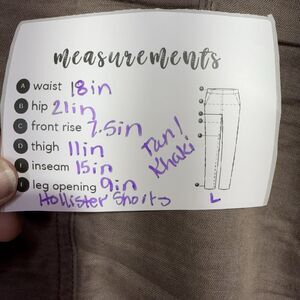 measurements
A waist 18in
B hip 21in
C front rise 7.5in
D thigh 11in
inseam 15in
leg opening 9in
Hollister Shorts
Tan!
Khaki
L